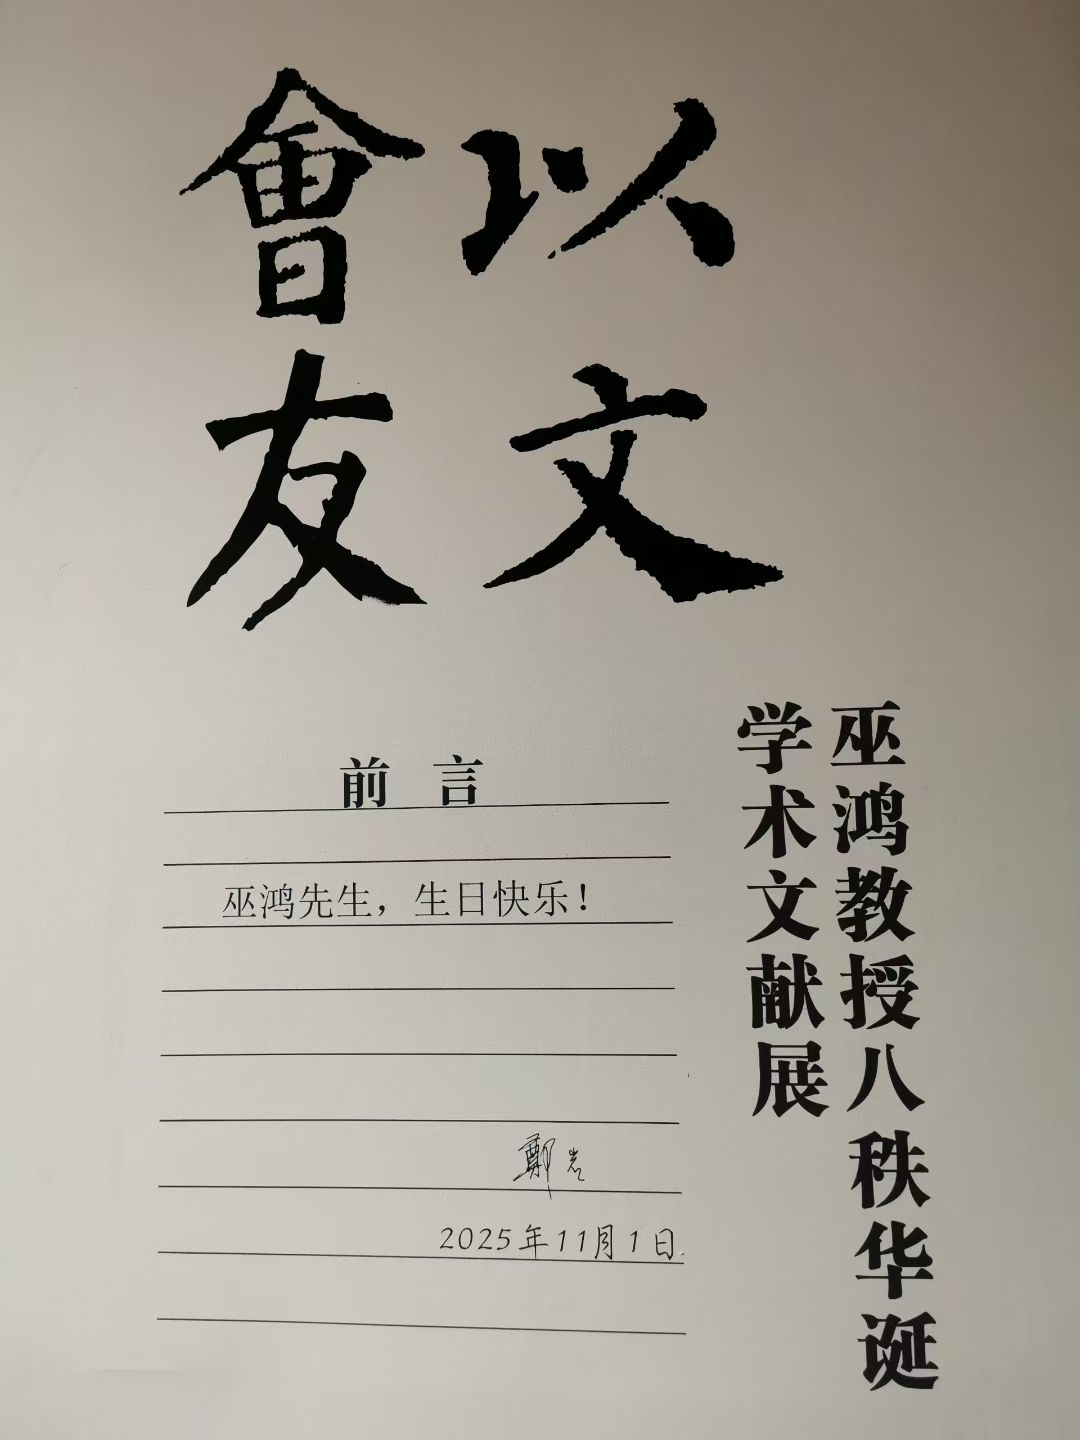 以文
會友
巫鸿教授八秩华诞
学术文献展
前言
巫鸿先生，生日快乐！
鄭岩
2025年11月1日